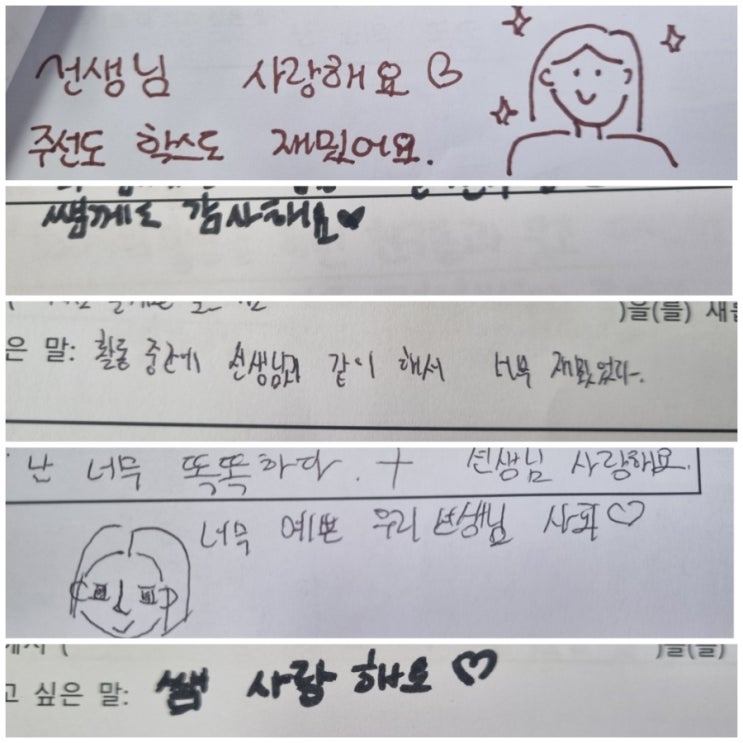 선생님 사랑해요♡
주선도 학스도 재밌어요.
쌤께도 감사해요♥
)을(를) 새
은 말: 활동 중간에 선생님과 같이 해서 너무 재밌었다.
난 너무 똑똑하다. + 선생님 사랑해요.
너무 예쁜 우리 선생님 사랑♡
)을(를)
고 싶은 말: 쌤 사랑해요♡